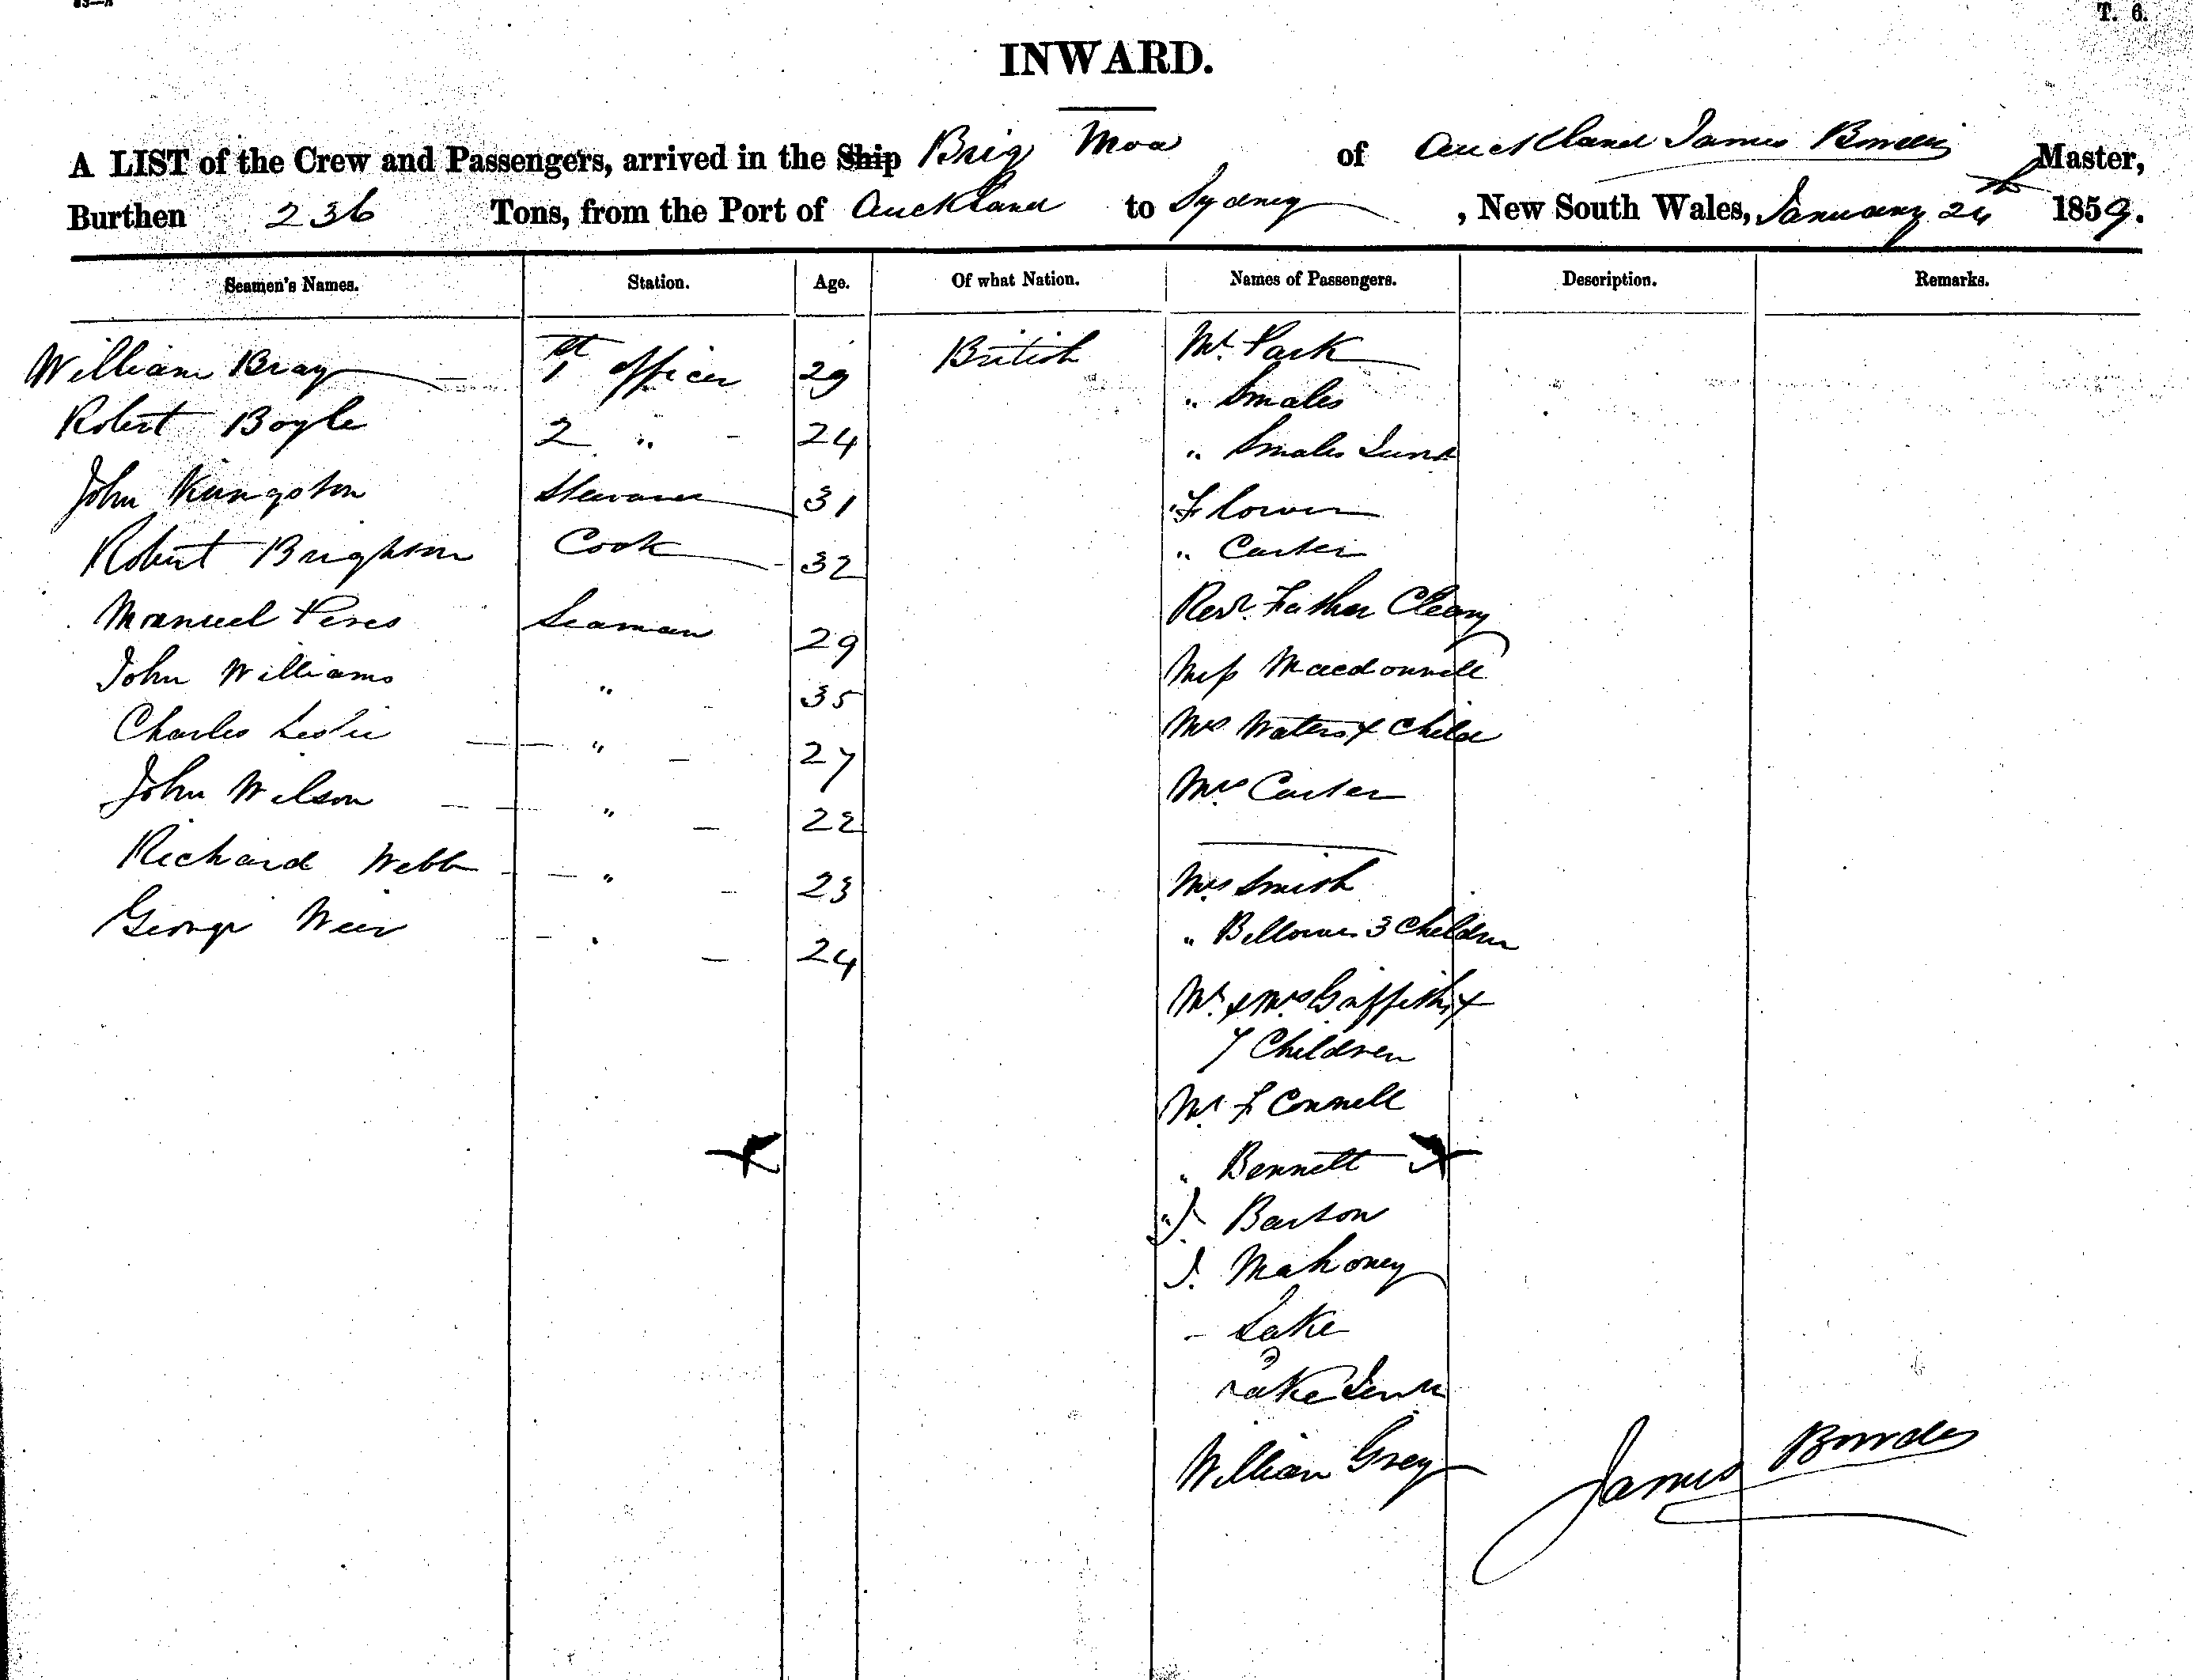 T. 6.
INWARD.
A LIST of the Crew and Passengers, arrived in the Ship Brig Moa of Auckland James Bowden Master,
Burthen 236 Tons, from the Port of Auckland to Sydney, New South Wales, January 24th 1859.
Seamen's Names. Station. Age. Of what Nation. Names of Passengers. Description. Remarks.
William Bray 1st officer 29 British Mr. Park
Robert Boyle 2 " 24 " Smales
" Smales Junr
John Kingston Steward 31 " Flower
Robert Brighton Cook 32 " Carter
Manuel Peres Seaman 29 Revd. Father Cleary
John Williams " 35 Miss Macdonnell
Charles Leslie " 27 Mrs Waters & Child
John Wilson " 22 Mrs Carter
Richard Webb " 23 Mrs Smith
George Weir " 24 " 3 Children
Mr. & Mrs Griffiths &
7 Children
Mr. F Connell
" Bennett
" J. Barton
J. Mahoney
- Lake
Lake Junr
William Grey
James Bowden